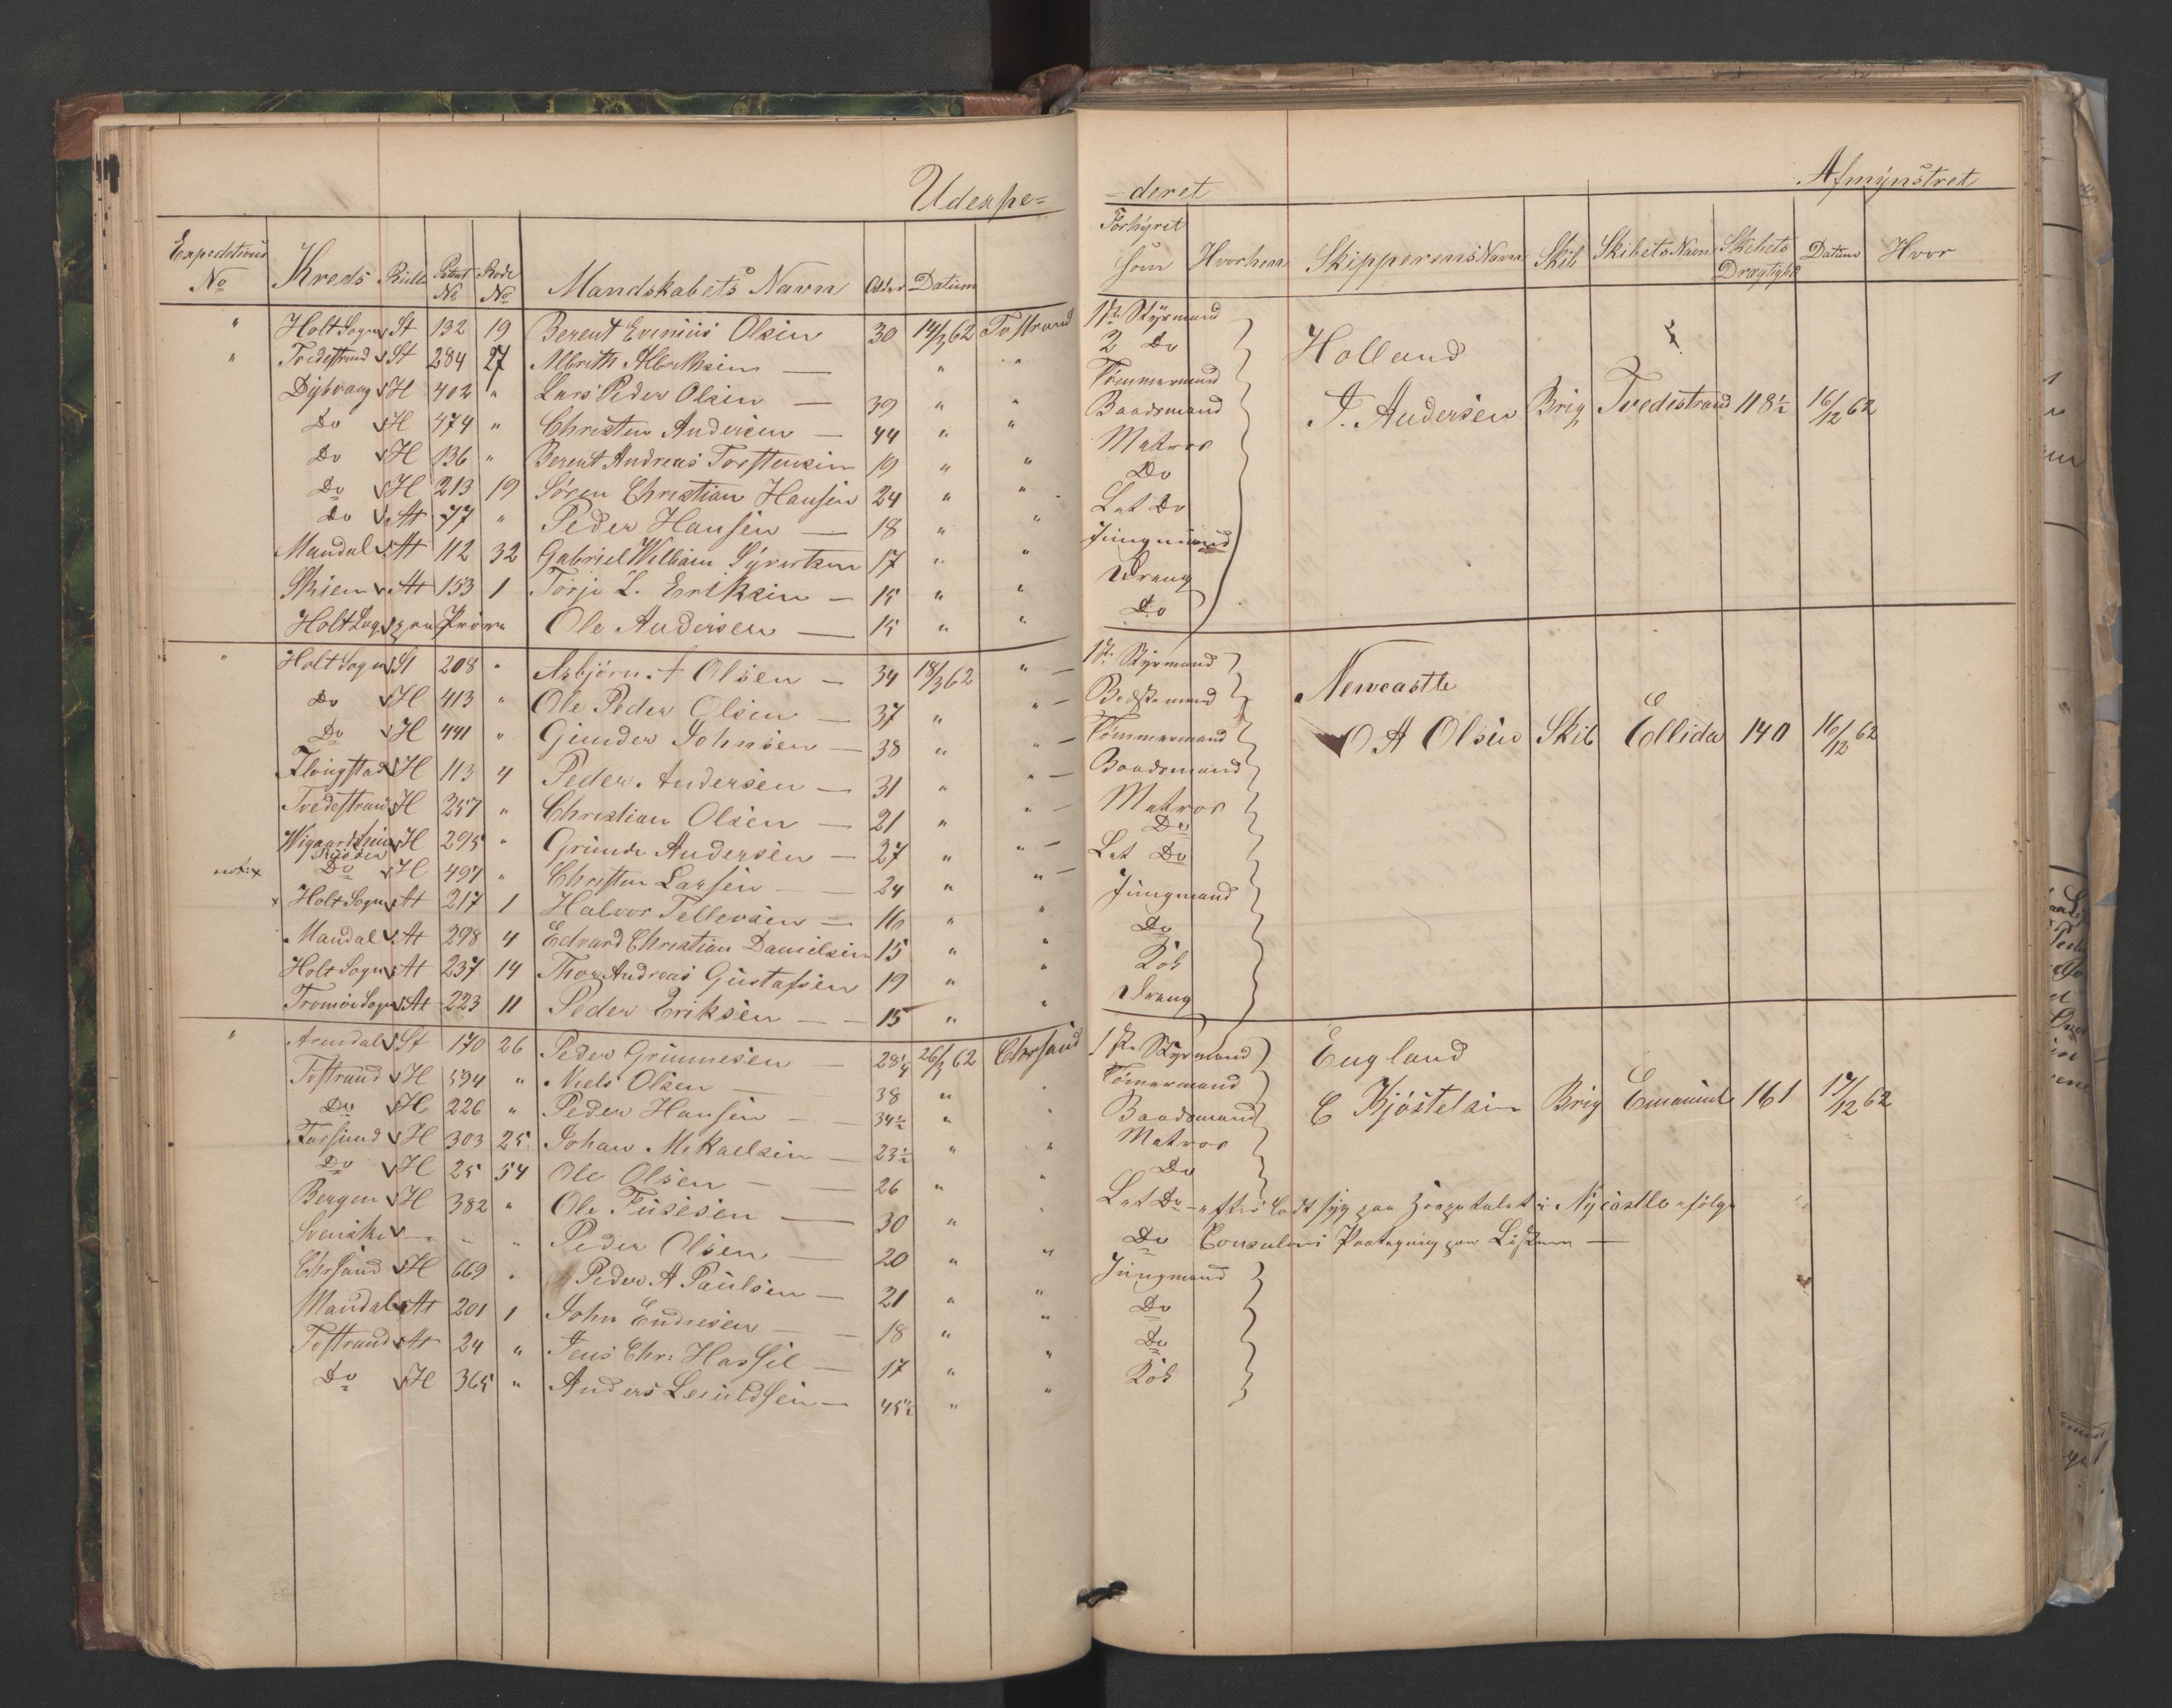 Udexpe=
Expeditions No Kreds Rulle Patent No Rode No Mandskabets Navn Alder Datum
" Holt Sogn St 132 19 Berent Evenius Olsen 30 14/3 62 Tvstrand
" Tvedestrand St 284 27 Albreth Albrethsen — " "
Dybvaag H 402 " Lars Peder Olsen — 39 " "
Do H 474 " Christen Andersen — 44 " "
Do H 136 " Berent Andreas Torstensen 19 " "
Do H 213 19 Sören Christian Hansen 24 " "
Do At 77 " Peder Hansen — 18 " "
Mandal At 112 32 Gabriel William Syvertsen 17 " "
Skien At 153 1 Torje L. Eriksen — 15 " "
Holt Sogn paa Pröve Ole Andersen — 15 " "
" Holt Sogn St 208 " Asbjörn A Olsen — 34 18/3 62 " —
Do H 413 " Ole Peder Olsen — 37 " " —
Do H 441 " Gunder Johnsen — 38 " " —
Flougstad H 113 4 Peder Andersen — 31 " " —
Tvedestrand H 257 " Christian Olsen — 21 " " —
H 295 " Grunde Andersen — 27 " " —
Do H 497 " Christen Larsen — 24 " " —
x Holt Sogn At 217 1 Halvor Tellevsen — 16 " "
Mandal At 298 4 Edvard Christian Danielsen 15 " "
Holt Sogn At 237 14 Thor Andreas Gustafsen 19 " "
Tromöe Sogn At 223 11 Peder Eriksen — 15 " "
" Arendal St 170 26 Peder Grimmesen — 28¼ 26/3 62 Chrsand
Tvstrand H 594 " Niels Olsen — 38 " "
Do H 226 " Peder Hansen — 34½ " "
Farsund H 303 25 Johan Mikaelsen — 23½ " "
Do H 25 54 Ole Olsen — 26 " "
Bergen H 382 " Ole — 30 " "
Svenske — " " Peder Olsen — 20 " "
Chrsand H 669 " Peder A Paulsen — 21 " "
Mandal At 201 1 John Endresen — 18 " "
Tvstrand At 24 " Jens Chr: Hassel — 17 " "
Do H 365 " Anders — 45½ " "
=deret Afmynstret
Forhyret som Hvorhen Skipperens Navn Skib Skibets Navn Skibets Drægtghd Datum Hvor
1ste Styrmand
2 Do Holland
Tömmermand
Baadsmand J. Andersen Brig Tvedestrand 118½ 16/12 62
Matros
Do
Let Do
Jungmand
Dreng
Do
1ste Styrmand
Bedstemand Newcastle
Tömmermand O A Olsen Skib Ellida 140 16/12 62
Baadsmand
Matros
Do
Let Do
Jungmand
Do
Kok
Dreng
1ste Styrmand England
Tömermand
Baadsmand E Kjöstelsen Brig Emanuel 161 17/12 62
Matros
Do
Let Do - syg paa Hospitalet i Nycastle ifölge
Do Consulens Paategning paa Listen —
Jungmand
Do
Do
Kok